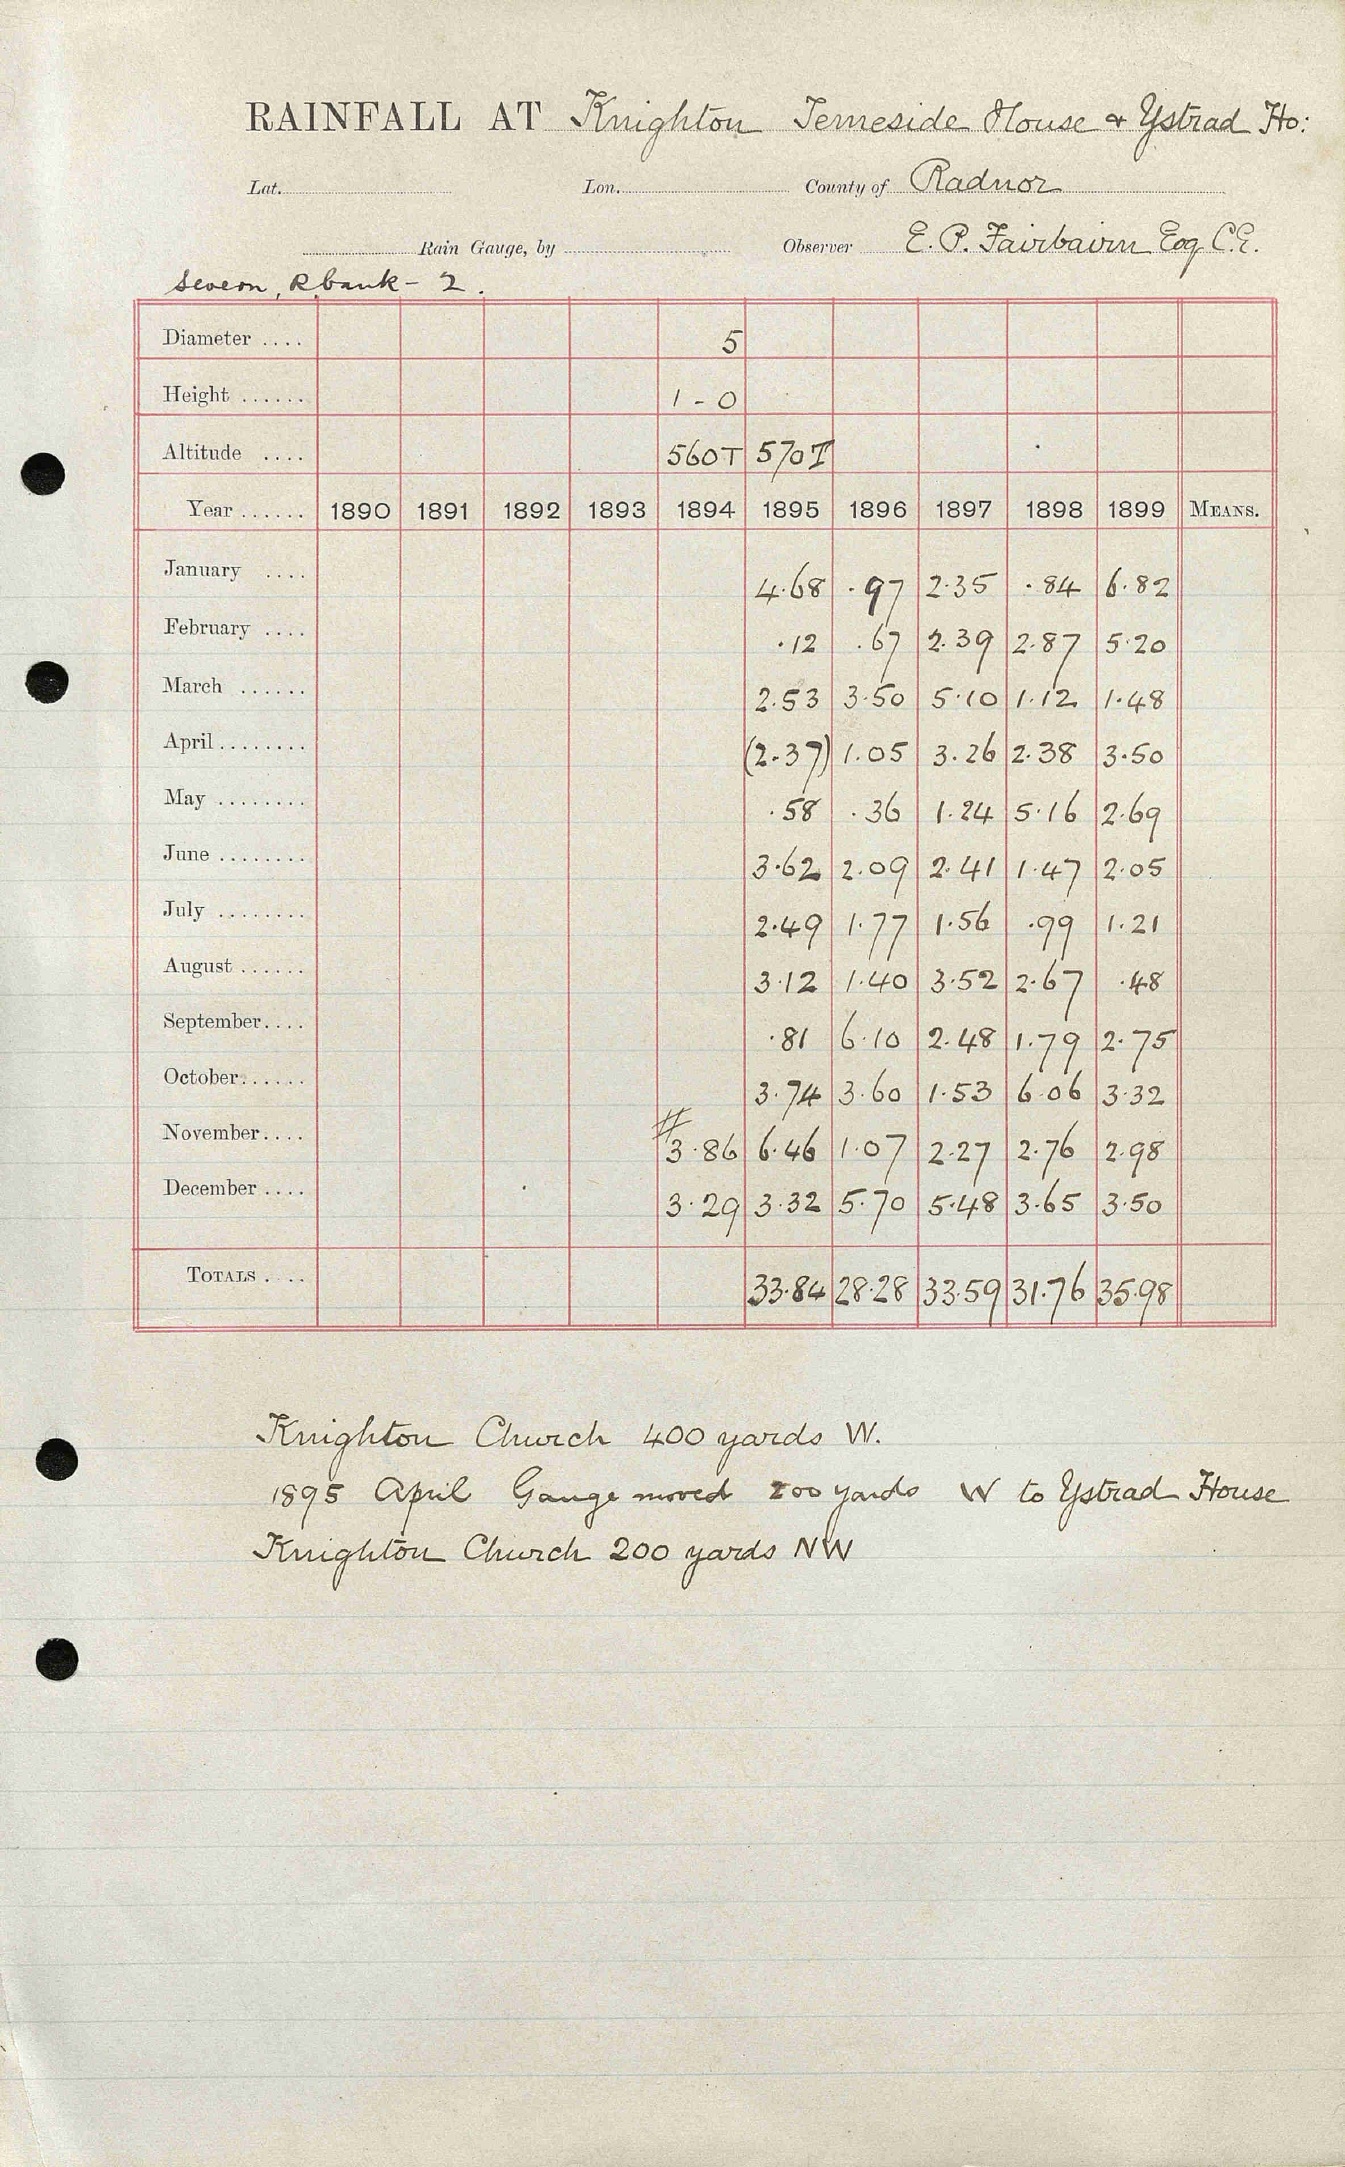 RAINFALL AT Knighton Temeside House & Ystrad Ho:
Lat. Lon. County of Radnor
Rain Gauge, by Observer E. P. Fairbairn Esq C.E.
Severn, R bank - 2.
Diameter .... 5
Height ...... 1-0
Altitude .... 560T 570T
Year ...... 1890 1891 1892 1893 1894 1895 1896 1897 1898 1899 MEANS.
January .... 4.68 .97 2.35 .84 6.82
February .... .12 .67 2.39 2.87 5.20
March ...... 2.53 3.50 5.10 1.12 1.48
April ........ (2.37) 1.05 3.26 2.38 3.50
May ........ .58 .36 1.24 5.16 2.69
June ........ 3.62 2.09 2.41 1.47 2.05
July ........ 2.49 1.77 1.56 .99 1.21
August ...... 3.12 1.40 3.52 2.67 .48
September.... .81 6.10 2.48 1.79 2.75
October...... 3.74 3.60 1.53 6.06 3.32
November.... # 3.86 6.46 1.07 2.27 2.76 2.98
December .... 3.29 3.32 5.70 5.48 3.65 3.50
TOTALS .... 33.84 28.28 33.59 31.76 35.98
Knighton Church 400 yards W.
1895 April Gauge moved 200 yards W to Ystrad House
Knighton Church 200 yards NW